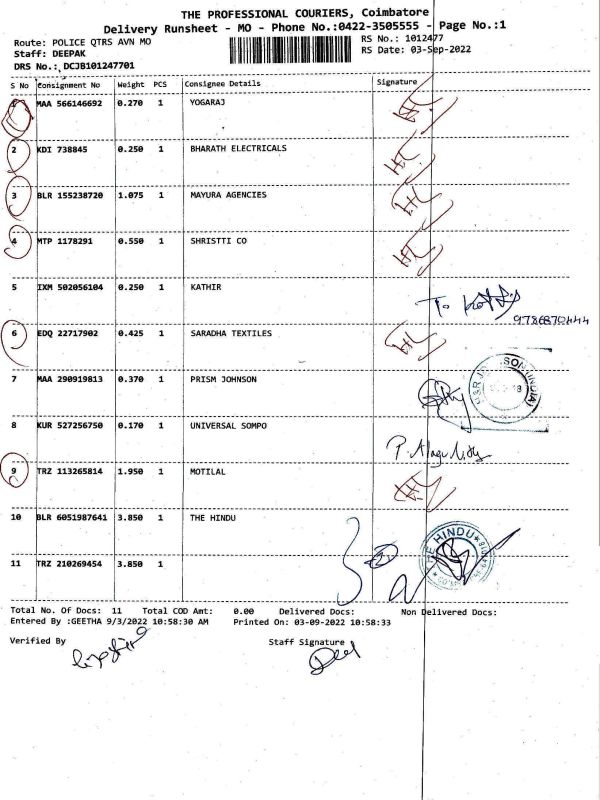 THE PROFESSIONAL COURIERS, Coimbatore
Delivery Runsheet - MO - Phone No.:0422-3505555 - Page No.:1
Route: POLICE QTRS AVN MO RS No.: 1012477
Staff: DEEPAK RS Date: 03-Sep-2022
DRS No.: DCJB101247701
S No Consignment No Weight PCS Consignee Details Signature
1 MAA 566146692 0.270 1 YOGARAJ
2 KDI 738845 0.250 1 BHARATH ELECTRICALS
3 BLR 155238720 1.075 1 MAYURA AGENCIES
4 MTP 1178291 0.550 1 SHRISTTI CO
5 IXM 502056104 0.250 1 KATHIR
To
9786870444
6 EDQ 22717902 0.425 1 SARADHA TEXTILES
7 MAA 290919813 0.370 1 PRISM JOHNSON
8 KUR 527256750 0.170 1 UNIVERSAL SOMPO
9 TRZ 113265814 1.950 1 MOTILAL
10 BLR 6051987641 3.850 1 THE HINDU
THE HINDU
11 TRZ 210269454 3.850 1
Total No. Of Docs: 11 Total COD Amt: 0.00 Delivered Docs: Non Delivered Docs:
Entered By :GEETHA 9/3/2022 10:58:30 AM Printed On: 03-09-2022 10:58:33
Verified By Staff Signature